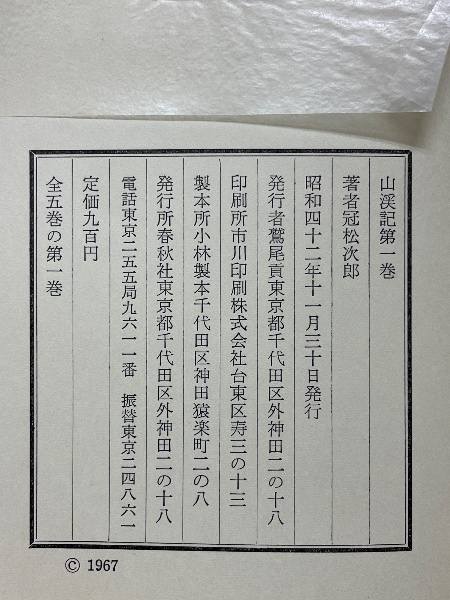 山渓記第一巻
著者冠松次郎
昭和四十二年十一月三十日発行
発行者鷲尾貢東京都千代田区外神田二の十八
印刷所市川印刷株式会社台東区寿三の十三
製本所小林製本千代田区神田猿楽町二の八
発行所春秋社東京都千代田区外神田二の十八
電話東京二五五局九六一一番 振替東京二四八六一
定価九百円
全五巻の第一巻
© 1967